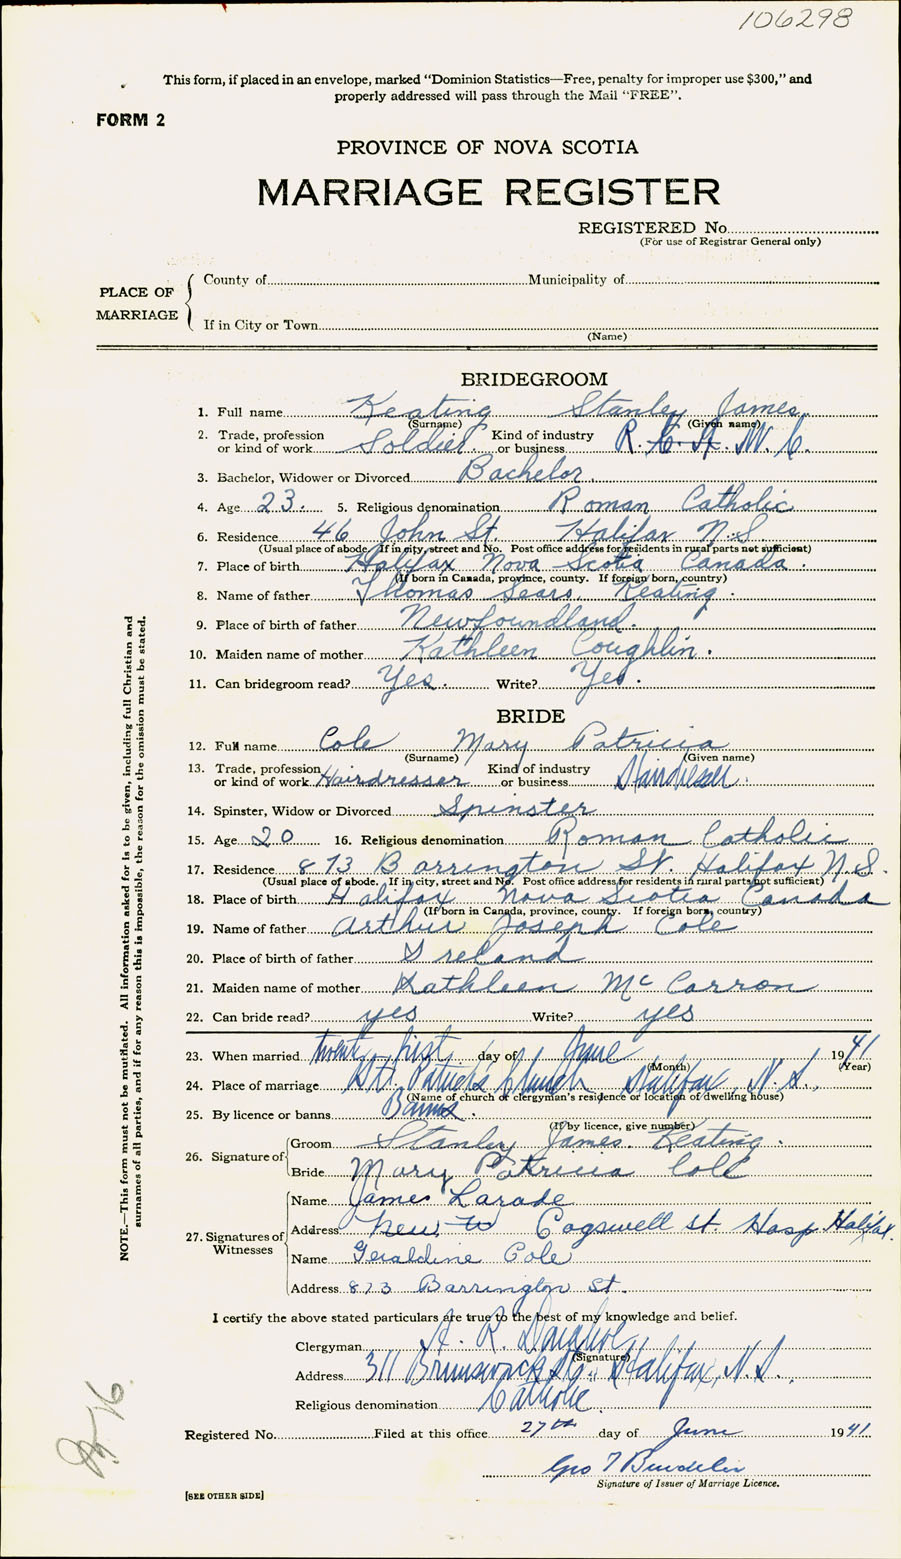 106298
This form, if placed in an envelope, marked "Dominion Statistics—Free, penalty for improper use $300," and
properly addressed will pass through the Mail "FREE".
FORM 2
PROVINCE OF NOVA SCOTIA
MARRIAGE REGISTER
REGISTERED No.
(For use of Registrar General only)
PLACE OF MARRIAGE
County of Municipality of
If in City or Town
(Name)
BRIDEGROOM
1. Full name Keating Stanley James
(Surname) (Given name)
2. Trade, profession or kind of work Soldier. Kind of industry or business R. C. A. M. C.
3. Bachelor, Widower or Divorced Bachelor.
4. Age 23. 5. Religious denomination Roman Catholic
6. Residence 46 John St. Halifax N.S.
(Usual place of abode. If in city, street and No. Post office address for residents in rural parts not sufficient)
7. Place of birth Halifax Nova Scotia Canada.
(If born in Canada, province, county. If foreign born, country)
8. Name of father Thomas Sears Keating.
9. Place of birth of father Newfoundland.
10. Maiden name of mother Kathleen Coughlin.
11. Can bridegroom read? Yes. Write? Yes.
BRIDE
12. Full name Cole Mary Patricia
(Surname) (Given name)
13. Trade, profession or kind of work Hairdresser Kind of industry or business Hairdresser.
14. Spinster, Widow or Divorced Spinster
15. Age 20 16. Religious denomination Roman Catholic
17. Residence 873 Barrington St. Halifax N.S.
(Usual place of abode. If in city, street and No. Post office address for residents in rural parts not sufficient)
18. Place of birth Halifax Nova Scotia Canada
(If born in Canada, province, county. If foreign born, country)
19. Name of father Arthur Joseph Cole
20. Place of birth of father Ireland
21. Maiden name of mother Kathleen McCarron
22. Can bride read? yes Write? yes
23. When married twenty first day of June 1941
(Month) (Year)
24. Place of marriage St. Patrick's Church Halifax, N.S.,
(Name of church or clergyman's residence or location of dwelling house)
25. By licence or banns Banns.
(If by licence, give number)
26. Signature of Groom Stanley James Keating.
Bride Mary Patricia Cole
27. Signatures of Witnesses
Name James Larade
Address Cogswell St. Hosp Halifax.
Name Geraldine Cole
Address 873 Barrington St.
I certify the above stated particulars are true to the best of my knowledge and belief.
Clergyman A. R.
(Signature)
Address 311 Brunswick St., Halifax, N.S.,
Religious denomination Catholic.
Registered No. Filed at this office 27th day of June 1941
Geo T
Signature of Issuer of Marriage Licence.
[SEE OTHER SIDE]
NOTE.—This form must not be mutilated. All information asked for is to be given, including full Christian and
surnames of all parties, and if for any reason this is impossible, the reason for the omission must be stated.